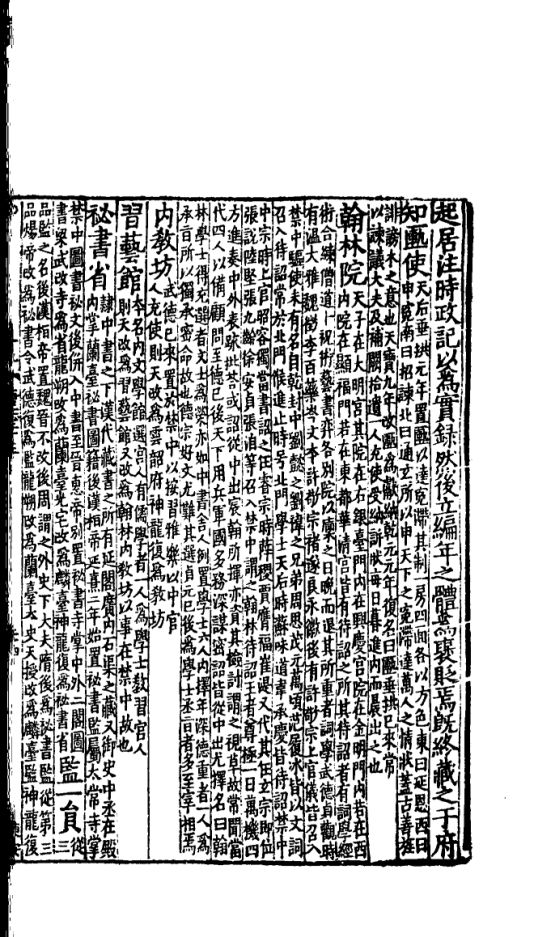 起居注時政記以爲實錄然後立編年之體爲褒貶焉旣終藏之于府
知匭使
天后垂拱元年置匭以達冤滯其制一房四面各以方色東曰延恩西曰
申冤南曰招諫北曰通玄所以申天下之冤滯達萬人之情狀蓋古善旌
誹謗木之意也天寶九年改匭爲獻納乾元元年復名曰匭垂拱已來常
以諫議大夫及補闕拾遺一人充使受納訴狀每日暮進內而晨出之也
翰林院
天子在大明宮其院在右銀臺門內在興慶宮院在金明門內若在西
內院在顯福門若在東都華清宮皆有待詔之所其待詔者有詞學經
術合鍊僧道卜祝術藝書弈各別院以廩之日晚而退其所重者詞學武德貞觀時
有溫大雅魏徵李百藥岑文本許敬宗褚遂良永徽後有許敬宗上官儀皆召入
禁中驅使未有名目乾封中劉懿之劉禕之兄弟周思茂元萬頃范履冰皆以文詞
召入待詔常於北門候進止時號北門學士天后時蘇味道韋承慶皆待詔禁中
中宗時上官昭容獨當書詔之任睿宗時薛稷賈膺福崔湜又代其任玄宗即位
張說陸堅張九齡徐安貞張洎等召入禁中謂之翰林待詔王者尊極一日萬機四
方進奏中外表疏批答或詔從中出宸翰所揮亦資其檢討謂之視草故常簡當
代四人以備顧問至德已後天下用兵軍國多務深謀密詔皆從中出尤擇名士翰
林學士得充選者文士爲榮亦如中書舍人例置學士六人內擇年深德重者一人爲
承旨所以獨承密命故也德宗好文尤難其選貞元已後爲學士承旨者多至宰相焉
內教坊
武德已來置於禁中以按習雅樂以中官
人充使則天改爲雲韶府神龍復爲教坊
習藝館
本名內文學館選宮人有儒學者一人爲學士教習宮人
則天改爲習藝館又改爲翰林內教坊以事在禁中故也
祕書省
隸中書之下漢代藏書之所有延閣廣內石渠之藏又御史中丞在殿
內掌蘭臺祕書圖籍後漢桓帝延熹二年始置祕書監屬太常寺掌
禁中圖書祕文後併入中書至晉惠帝別置祕書寺掌中外二閣圖
書梁武改寺爲省龍朔改爲蘭臺光宅改爲麟臺神龍復爲祕書省
監一員
從
三
品監之名後漢桓帝置魏晉不改後周謂之外史下大夫隋後爲祕書監從第三
品煬帝改爲祕書令武德復爲監龍朔改爲蘭臺太史天授改爲麟臺監神龍復